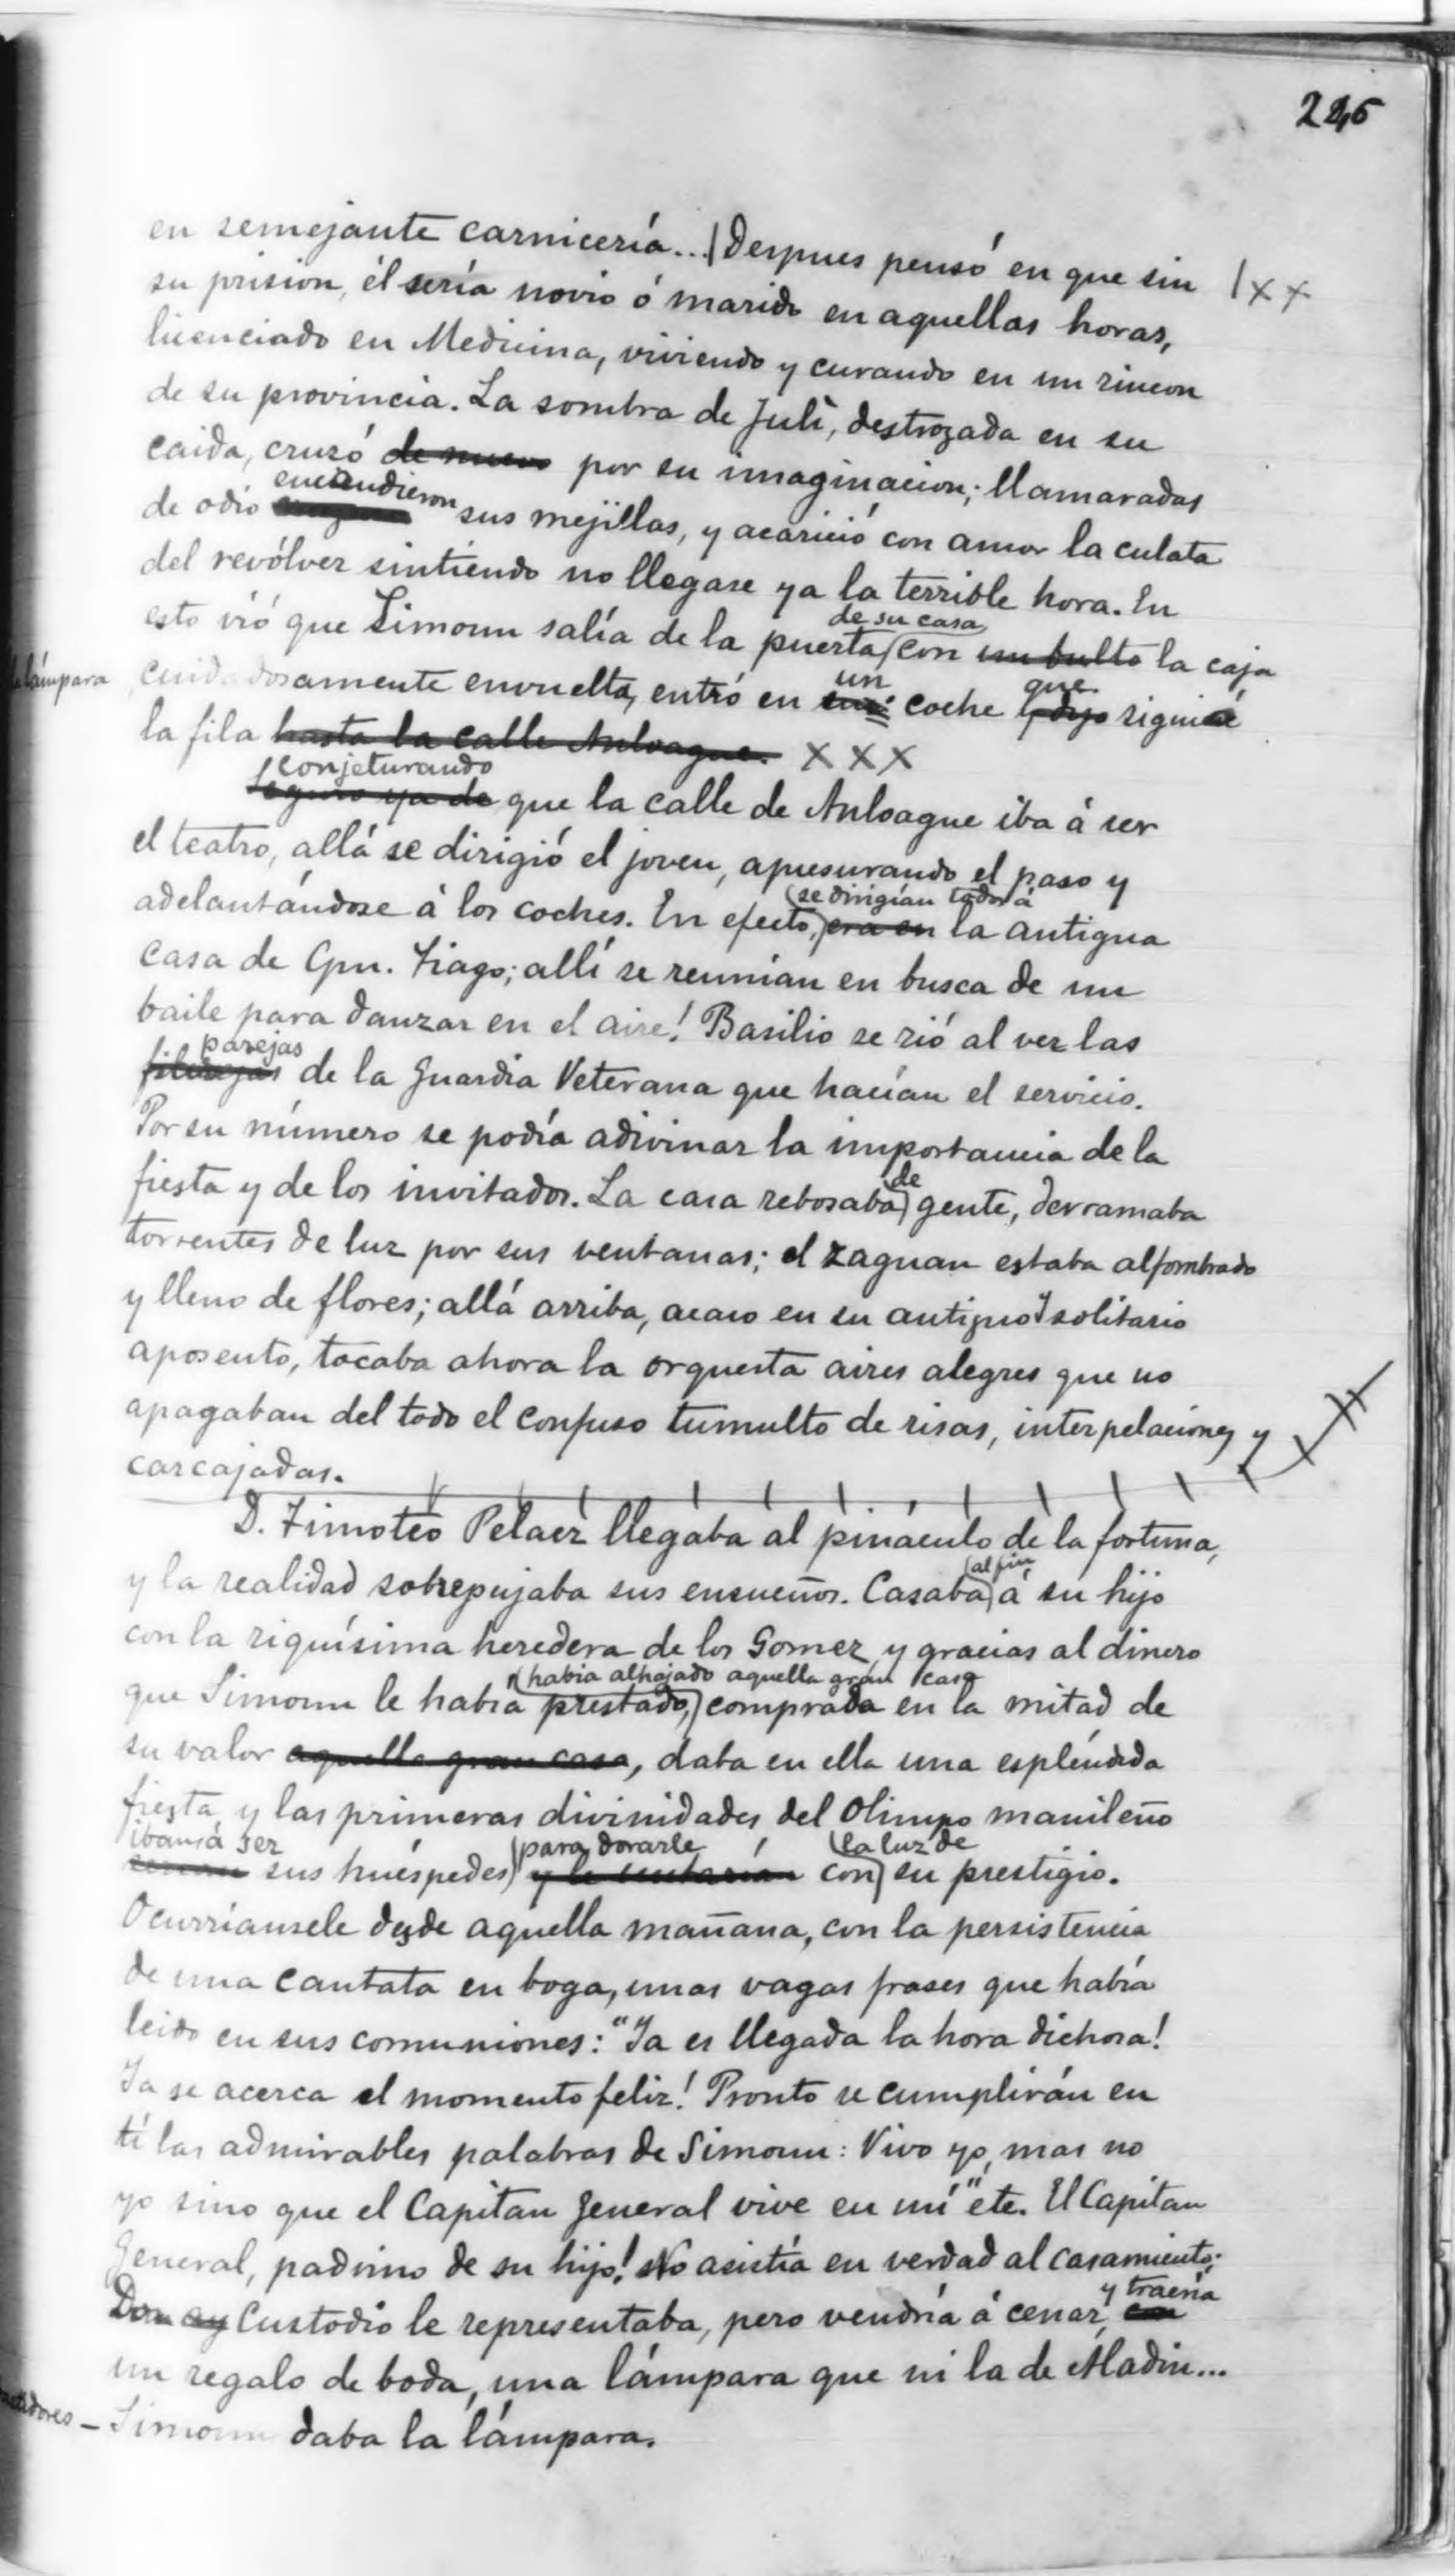 226
en semejante carnicería...| Despues pensó en que sin |xx
su prision, él sería novio ó marido en aquellas horas,
licenciado en Medicina, viviendo y curando en un rincon
de su provincia. La sombra de Julî, destrozada en su
caida, cruzó de nuevo por su imaginacion; llamaradas
encendieron
de odio sus mejillas, y acarició con amor la culata
del revólver sintiendo no llegase ya la terrible hora. En
de su casa
esto vió que Simoun salía de la puerta con un bulto la caja
lámpara cuidadosamente envuelta, entró en un coche que siguió
la fila hasta la calle Anloague. XXX
conjeturando
Seguro ya de que la calle de Anloague iba á ser
el teatro, allá se dirigió el joven, apresurando el paso y
se dirigían todos á
adelantándose á los coches. En efecto, era en la antigua
casa de Cpn. Tiago; allí se reunían en busca de un
baile para danzar en el aire! Basilio se rió al ver las
parejas
de la Guardia Veterana que hacían el servicio.
Por su número se podía adivinar la importancia de la
de
fiesta y de los invitados. La casa rebosaba gente, derramaba
torrentes de luz por sus ventanas; el zaguan estaba alfombrado
y lleno de flores; allá arriba, acaso en su antiguo y solitario
aposento, tocaba ahora la orquesta aires alegres que no
apagaban del todo el confuso tumulto de risas, interpelaciones y
carcajadas.
D. Timoteo Pelaez llegaba al pináculo de la fortuna,
al fin
y la realidad sobrepujaba sus ensueños. Casaba á su hijo
con la riquísima heredera de los Gomez y gracias al dinero
habia alhajado aquella gran casa
que Simoun le habia prestado, comprada en la mitad de
su valor aquella gran casa, daba en ella una espléndida
fiesta y las primeras divinidades del Olimpo manileño
iban á ser para dorarle la luz de
sus huéspedes y le con su prestigio.
Ocurríansele desde aquella mañana, con la persistencia
de una cantata en boga, unas vagas frases que había
leido en sus comuniones: "Ya es llegada la hora dichosa!
Ya se acerca el momento feliz! Pronto se cumplirán en
tí las admirables palabras de Simoun: Vivo yo, mas no
yo sino que el Capitan General vive en mí" etc. El Capitan
General, padrino de su hijo! No asistía en verdad al casamiento;
y traería
Don Custodio le representaba, pero vendría á cenar, con
un regalo de boda, una lámpara que ni la de Aladin...
– Simoun daba la lámpara.